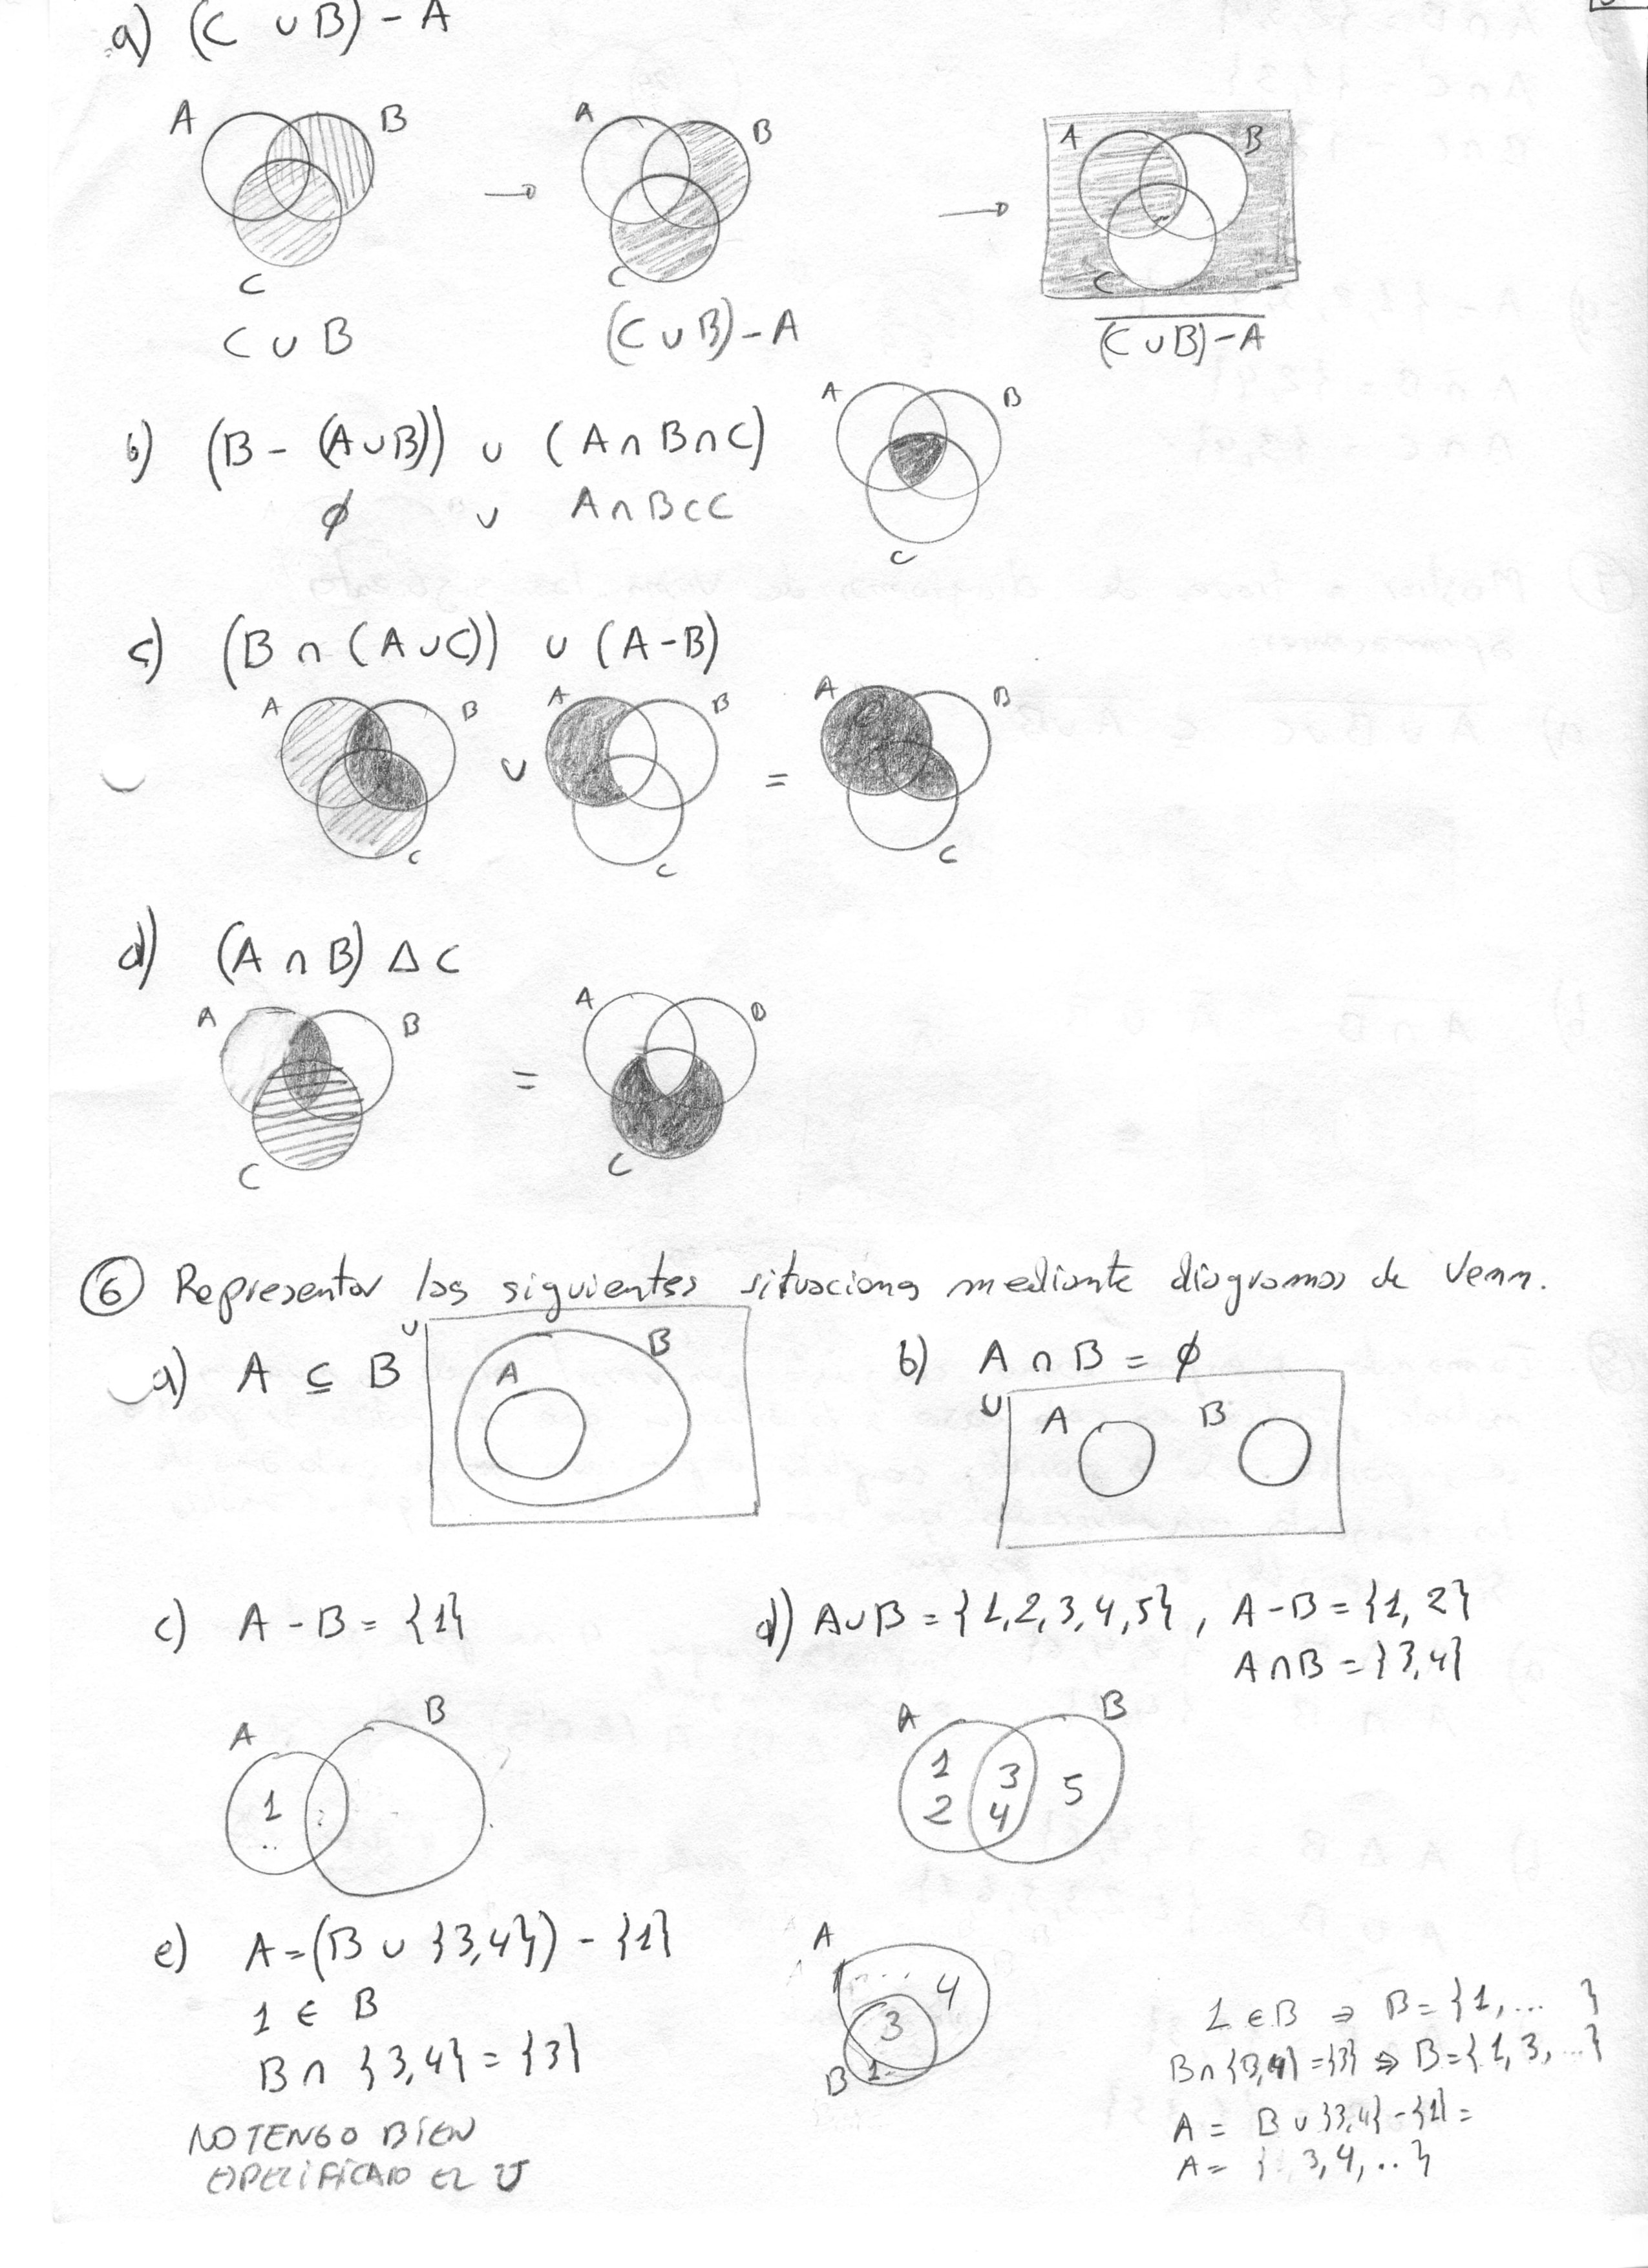 a) (C ∪ B) - A
A B → A B → A B
C C C
C ∪ B (C ∪ B) - A \overline{(C ∪ B) - A}
b) (B - (A ∪ B)) ∪ (A ∩ B ∩ C) A B
ϕ ∪ A ∩ B ⊂ C C
c) (B ∩ (A ∪ C)) ∪ (A - B)
A B ∪ A B = A B
C C C
d) (A ∩ B) Δ C
A B = A B
C C
⑥ Representar las siguientes situaciones mediante diagramas de Venn.
a) A ⊆ B U A B
b) A ∩ B = ϕ
U A B
c) A - B = {1}
d) A ∪ B = {1,2,3,4,5}, A - B = {1, 2}
A ∩ B = {3,4}
A B
1
A B
1 3 5
2 4
e) A = (B ∪ {3,4}) - {1}
1 ∈ B
B ∩ {3,4} = {3}
NO TENGO BIEN
ESPECIFICADO EL U
A
4
3
B 1
1 ∈ B ⇒ B = {1, ... }
B ∩ {3,4} = {3} ⇒ B = {1, 3, ...}
A = B ∪ {3,4} - {1} =
A = { 3, 4, .. }